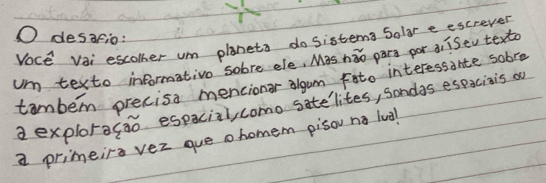 O desafio:
Você vai escolher um planeta do Sistema Solar e escrever
um texto informativo sobre ele. Mas não para por aí! Seu texto
também precisa mencionar algum fato interessante sobre
a exploração espacial, como satélites, sondas espaciais ou
a primeira vez que o homem pisou na lua!